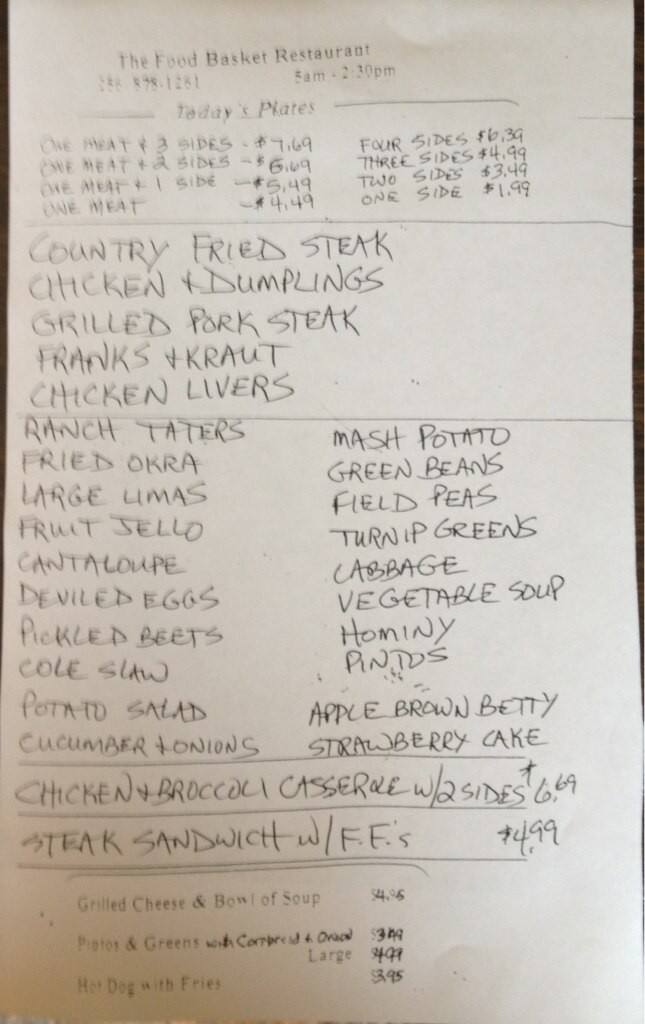 The Food Basket Restaurant
256-878-1261 5am - 2:30pm
Today's Plates
ONE MEAT & 3 SIDES - $7.69 FOUR SIDES $6.39
ONE MEAT & 2 SIDES - $6.69 THREE SIDES $4.99
ONE MEAT & 1 SIDE - $5.49 TWO SIDES $3.49
ONE MEAT - $4.49 ONE SIDE $1.99
COUNTRY FRIED STEAK
CHICKEN & DUMPLINGS
GRILLED PORK STEAK
FRANKS & KRAUT
CHICKEN LIVERS
RANCH TATERS MASH POTATO
FRIED OKRA GREEN BEANS
LARGE LIMAS FIELD PEAS
FRUIT JELLO TURNIP GREENS
CANTALOUPE CABBAGE
DEVILED EGGS VEGETABLE SOUP
PICKLED BEETS HOMINY
COLE SLAW PINTOS
POTATO SALAD APPLE BROWN BETTY
CUCUMBER & ONIONS STRAWBERRY CAKE
CHICKEN & BROCCOLI CASSEROLE W/2 SIDES $6.69
STEAK SANDWICH W/ F.F.'s $4.99
Grilled Cheese & Bowl of Soup $4.95
Pintos & Greens with Cornbread & Onion $3.49
Large $4.99
Hot Dog with Fries $3.95